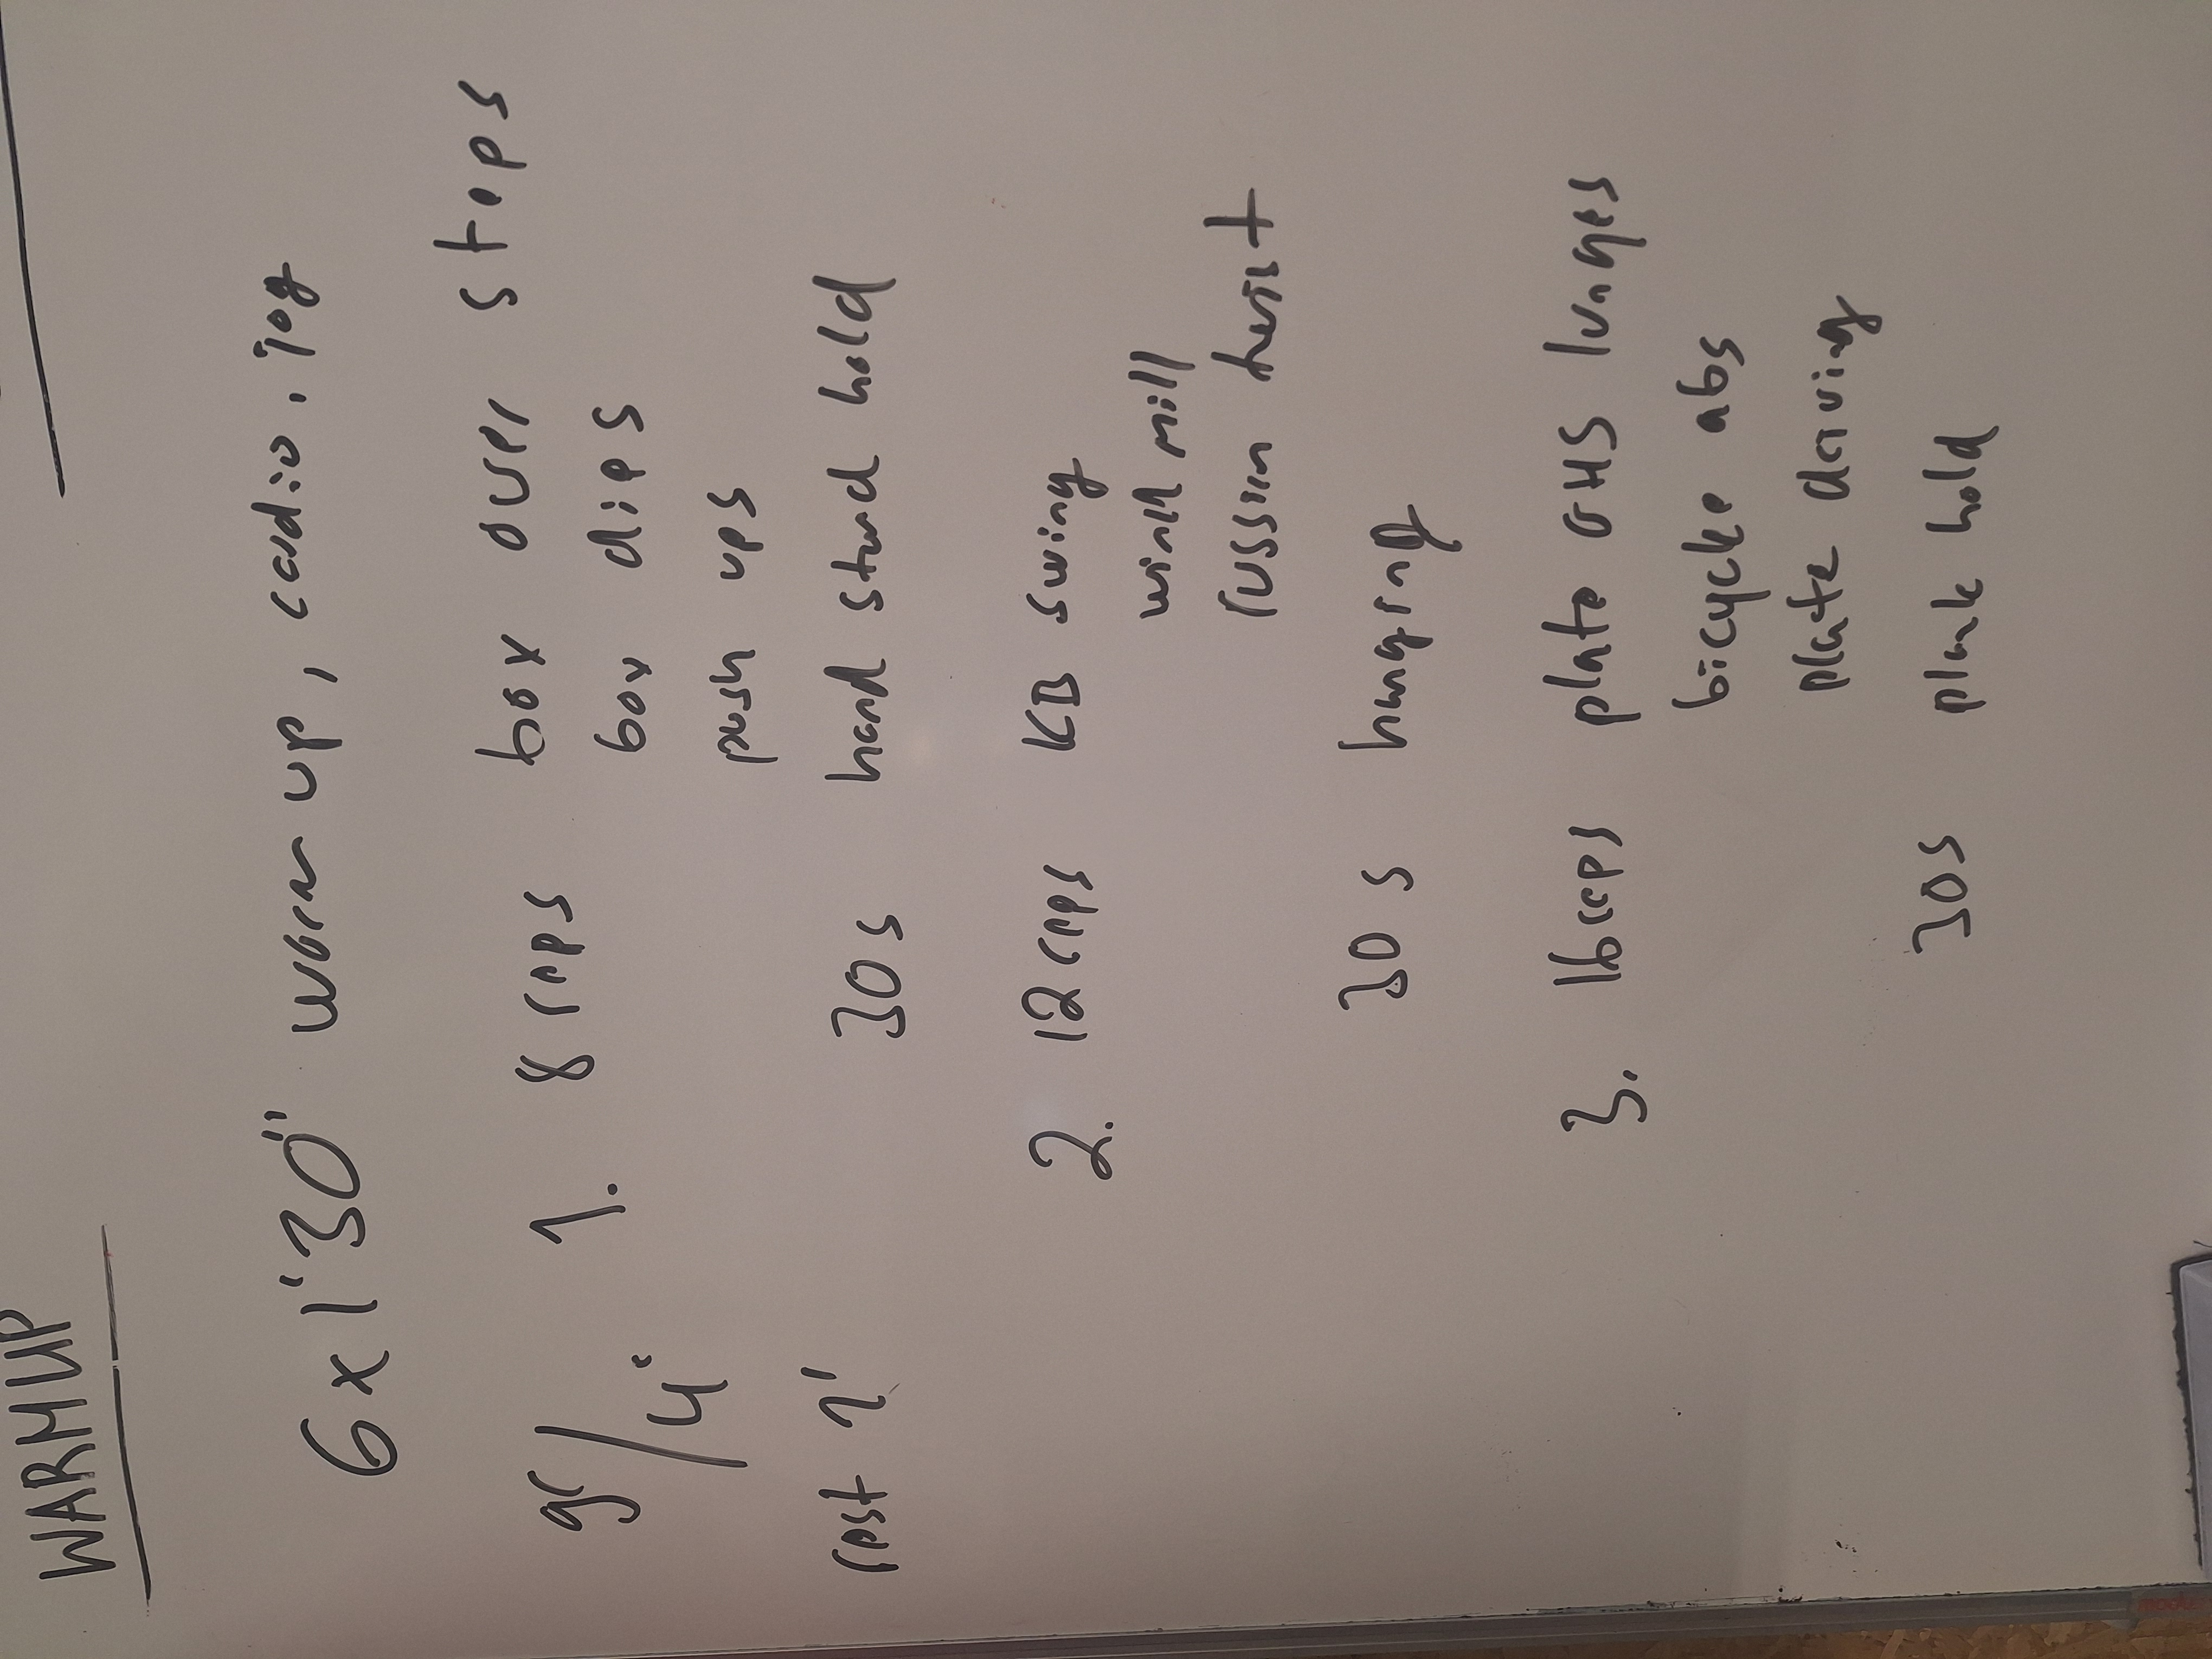 WARMUP
6 x 1'30" warm up, cardio: jog
1. 8 reps box over steps
box dips
push ups
rest 1' 30s hand stand hold
2. 12 reps KB swing
wind mill
russian twist
30 s hanging
3. 16 reps plate OHS lunges
bicycle abs
plate driving
30s plank hold